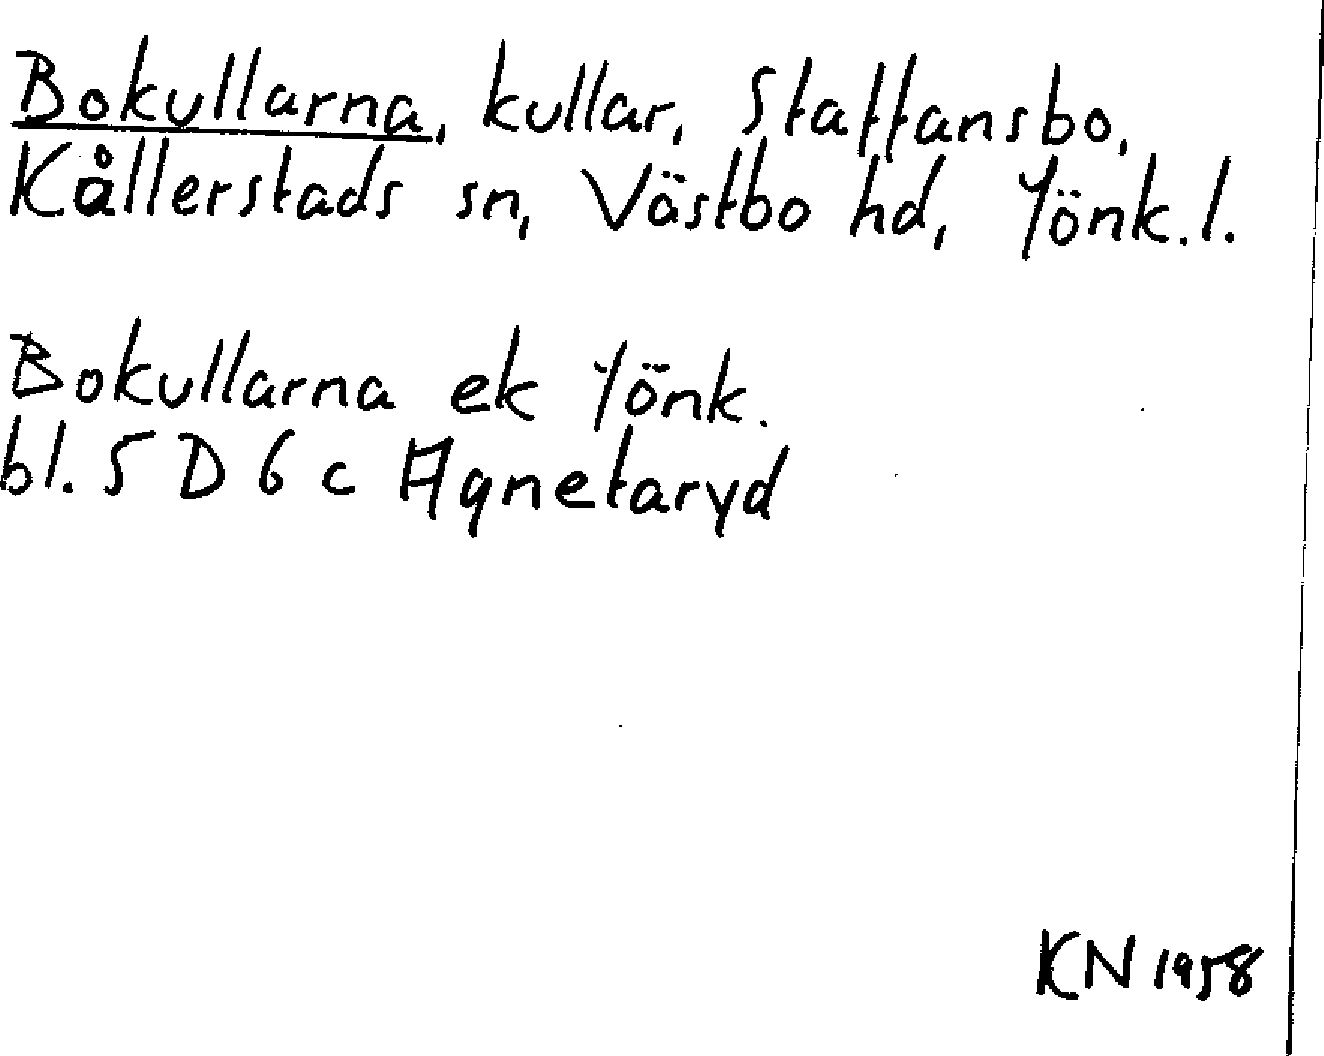 Bokullarna, kullar, Staffansbo,
Kållerstads sn, Västbo hd, Jönk. l.
Bokullarna ek Jönk.
bl. 5 D 6 c Agnetaryd
KN 1958